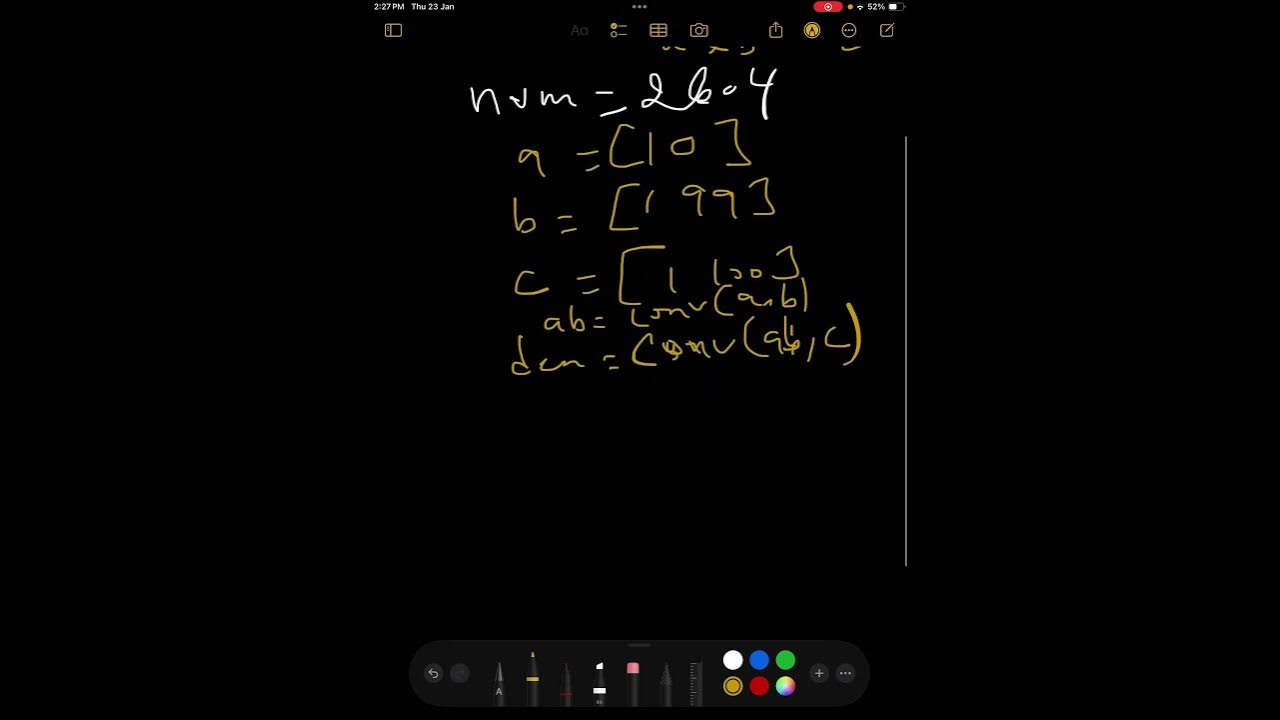 2:27 PM Thu 23 Jan 52%
Aa
num = 2604
a = [1 0]
b = [1 99]
c = [1 100]
ab = conv(a,b)
den = conv(ab, c)
A